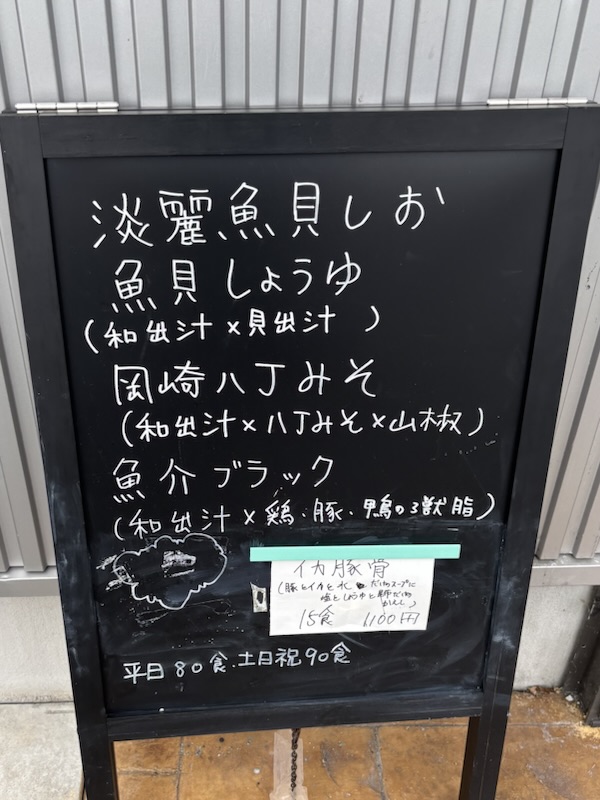 淡麗魚貝しお
魚貝しょうゆ
(和出汁×貝出汁)
岡崎八丁みそ
(和出汁×八丁みそ×山椒)
魚介ブラック
(和出汁×鶏、豚、鴨の3獣脂)
イカ豚骨
(豚とイカと水だけのスープに
塩としょうゆと
かえし)
15食 1100円
平日80食、土日祝90食